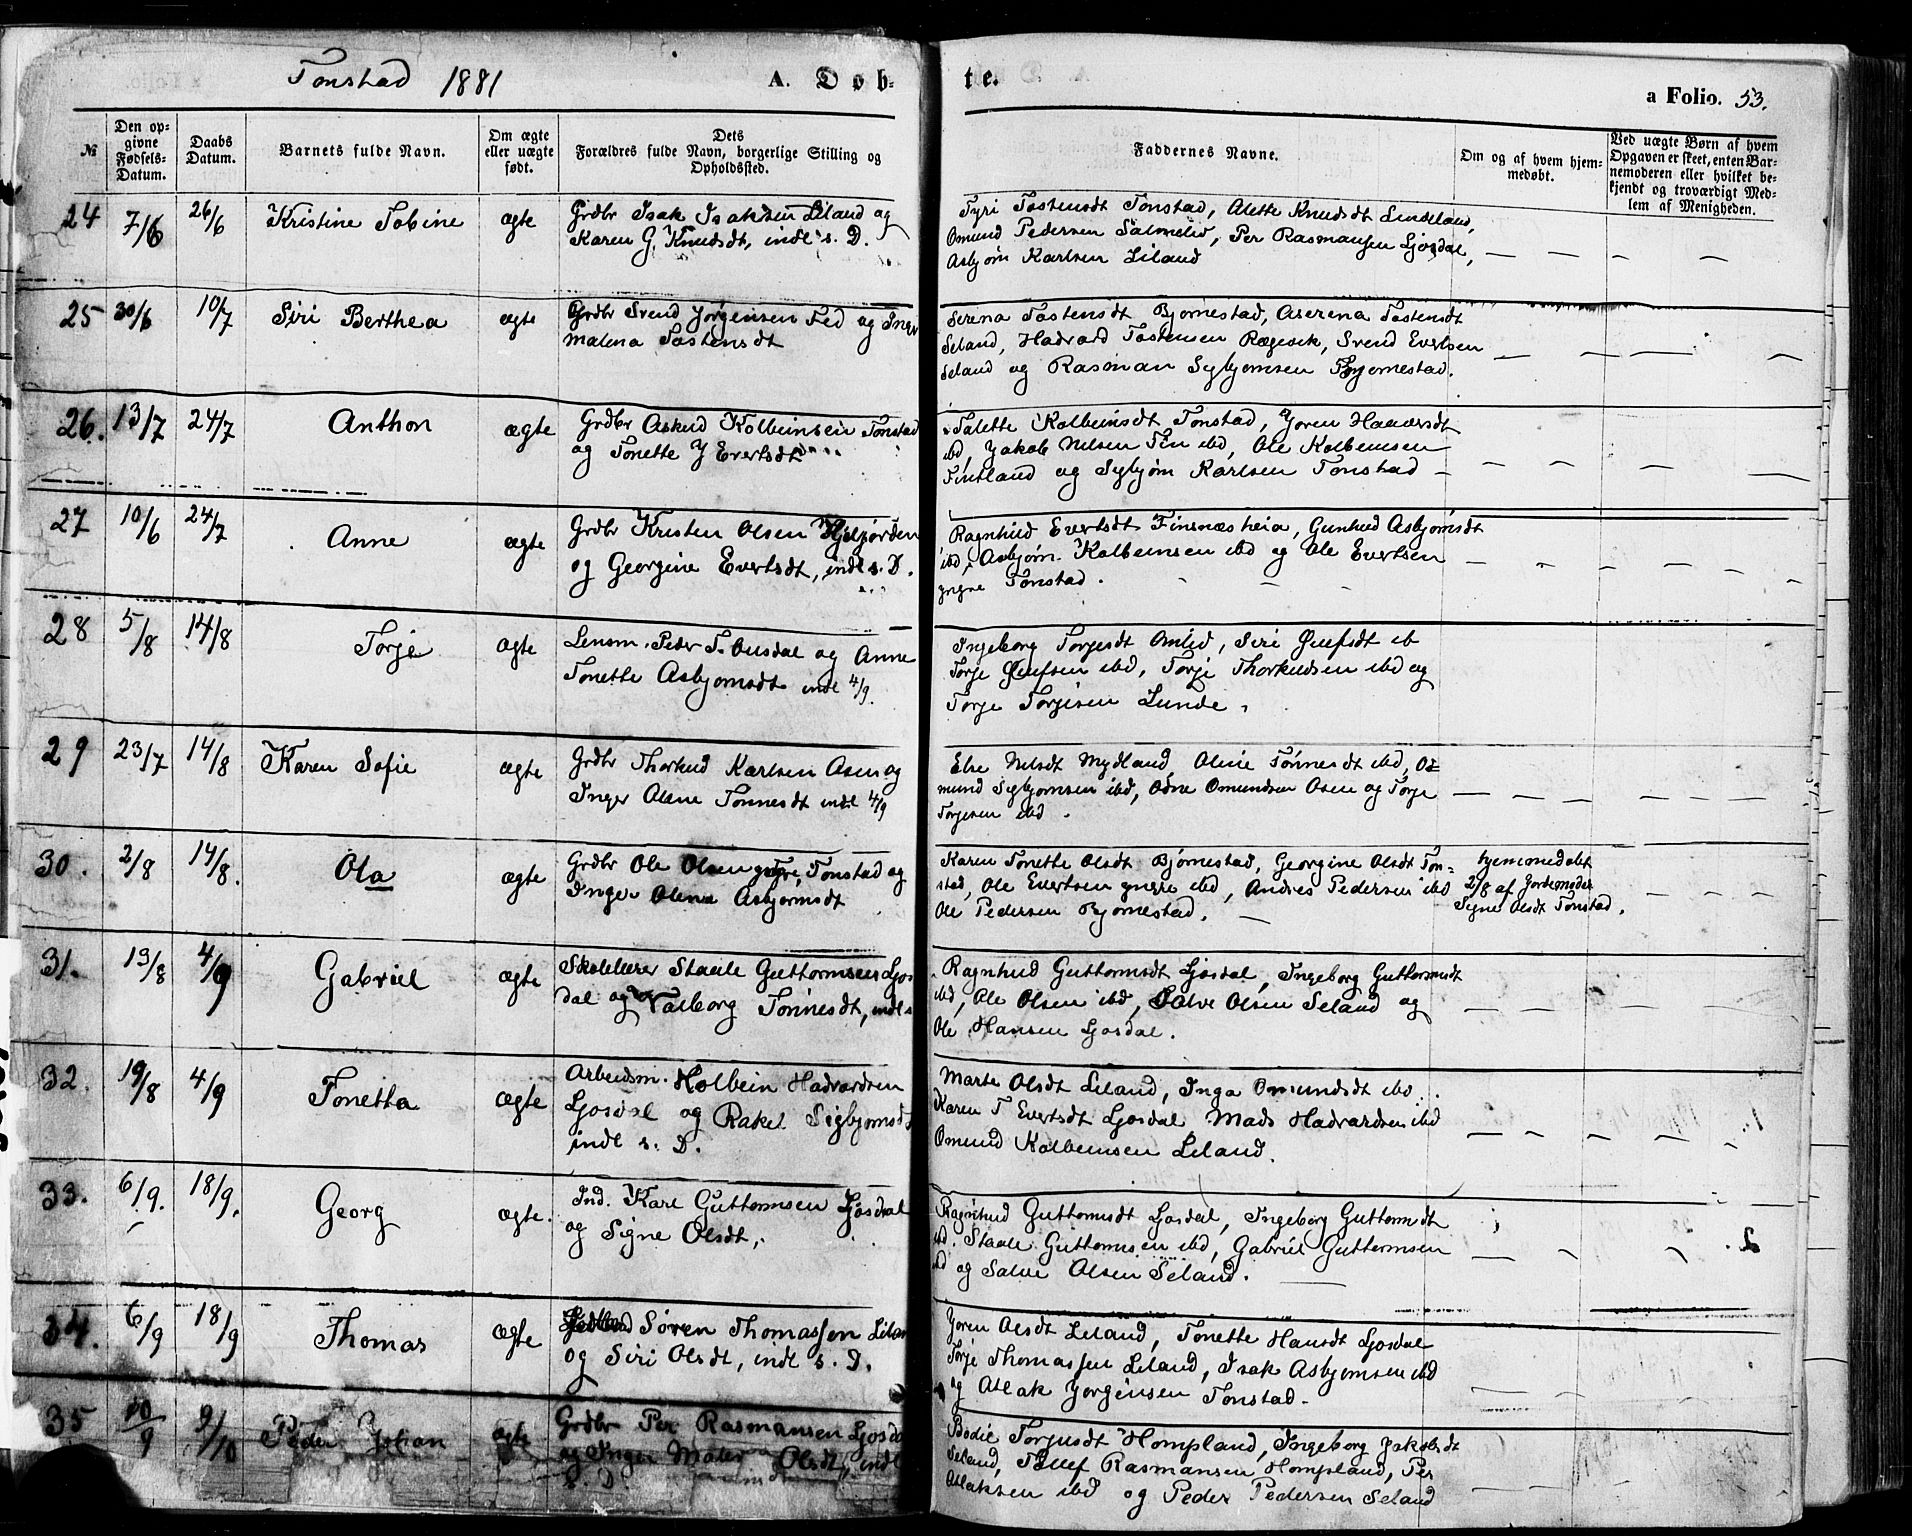 Tonstad 1881
A. Døb-
te.
a Folio. 53.
№
Den op-
givne
Fødsels-
Datum.
Daabs
Datum.
Barnets fulde Navn.
Om ægte
eller uægte
født.
Dets
Forældres fulde Navn, borgerlige Stilling og
Opholdssted.
Faddernes Navne.
Om og af hvem hjem-
medøbt.
Ved uægte Børn af hvem
Opgaven er skeet, enten Bar-
nemoderen eller hvilket be-
kjendt og troværdigt Med-
lem af Menigheden.
24 7/6 26/6 Kristine Tobine ægte
Grdbr Isak Isaksen Liland og
Karen G. Knudsdt, indl s. D.
Tyri Tostensdt Tonstad, Alette Knudsdt Lindeland,
Omund Pedersen Salmelid, Per Rasmansen Ljosdal,
Asbjørn Karlsen Liland
25 30/6 10/7 Siri Berthea ægte
Grdbr Svend Jørgensen Fed og Inger
Malena Tostensdt
Serena Tostensdt Bjørnestad, Aserena Tostensdt
Seland, Hadvard Tostensen Rægevik, Svend Evertsen
Seland og Rasman Sigbjørnsen Bjørnestad.
26. 13/7 24/7 Anthon ægte
Grdbr Aslaud Kolbeinsen Tonstad
og Tonette J Evertsdt
Talette Kolbeinsdt Tonstad, Joren Haaversdt
ibd, Jakob Nilsen Fin ibd, Ole Kolbeinsen
Fintland og Sigbjørn Karlsen Tonstad
27 10/6 24/7 Anne ægte
Grdbr Kristen Olsen
og Georgine Evertsdt, indl s. D.
Ragnhild Evertsdt Finsnæsheia, Gunhild Asbjørnsdt
ibd, Asbjørn Kolbeinsen ibd og Ole Evertsen
yngre Tonstad.
28 5/8 14/8 Torje ægte
Lensm. Peder T. Ousdal og Anne
Tonette Asbjørnsdt indl 4/9.
Ingeborg Torjesdt Omlid, Siri
Torje ibd, Torje Thorkildsen ibd og
Torje Torjesen Lunde.
29 23/7 14/8 Karen Sofie ægte
Grdbr Thorkild Karlsen Asen og
Inger Olene Tønnesdt indl 4/9
Else Nilsdt Mydland Oline Tønnesdt ibd, Os
mund Sigbjørnsen ibd, Odne Omundsen Osen og Torje
Torjesen ibd.
30. 2/8 14/8. Ola ægte
Grdbr Ole Olsen yngre, Tonstad og
Inger Olena Asbjørnsdt
Karen Tonette Olsdt Bjørnestad, Georgine Olsdt Ton-
stad, Ole Evertsen yngre ibd, Andres Pedersen ibd
Ole Pedersen Bjørnestad.
hjemmedøbt
2/8 af Jordemoder
Signe Olsdt Tonstad.
31. 13/8 4/9 Gabriel ægte
Skolelærer Staale Guttormsen Ljos
dal og Valborg Tønnesdt, indl s
Ragnhild Guttormsdt Ljosdal, Ingeborg Guttormsdt
ibd, Ole Olsen ibd, Salve Olsen Seland og
Ole Hansen Ljosdal.
32. 19/8 4/9 Tonetta ægte
Arbeidsm. Kolbein Hadvardsen
Ljosdal og Rakel Sigbjørnsdt
indl s. D.
Marte Olsdt Liland, Inga Omundsdt ibd.
Karen T Evertsdt Ljosdal Mads Hadvardsen ibd
Omund Kolbeinsen Liland.
33. 6/9. 18/9. Georg ægte.
Ind. Karl Guttormsen Ljosdal
og Signe Olsdt,
Ragnhild Guttormsdt Ljosdal, Ingeborg Guttormsdt
ibd. Staale Guttormsen ibd, Gabriel Guttormsen
ibd og Salve Olsen Seland.
34. 6/9 18/9 Thomas ægte
Søren Thomassen Liland
og Siri Olsdt, indl s. D.
Joren Olsdt Liland, Tonette Hansdt Ljosdal
Torje Thomassen Liland, Isak Asbjørnsen ibd
og Atlak Jørgensen Tonstad.
35 10/9 9/10 Peder Johan ægte
Grdbr Per Rasmansen Ljosdal
og Inger Olsdt, indl
s. D.
Bodil Torjusdt Hompland, Ingeborg Jakobsdt
Seland, Tollef Rasmansen Hompland, Per
Atlaksen ibd og Peder Pedersen Seland